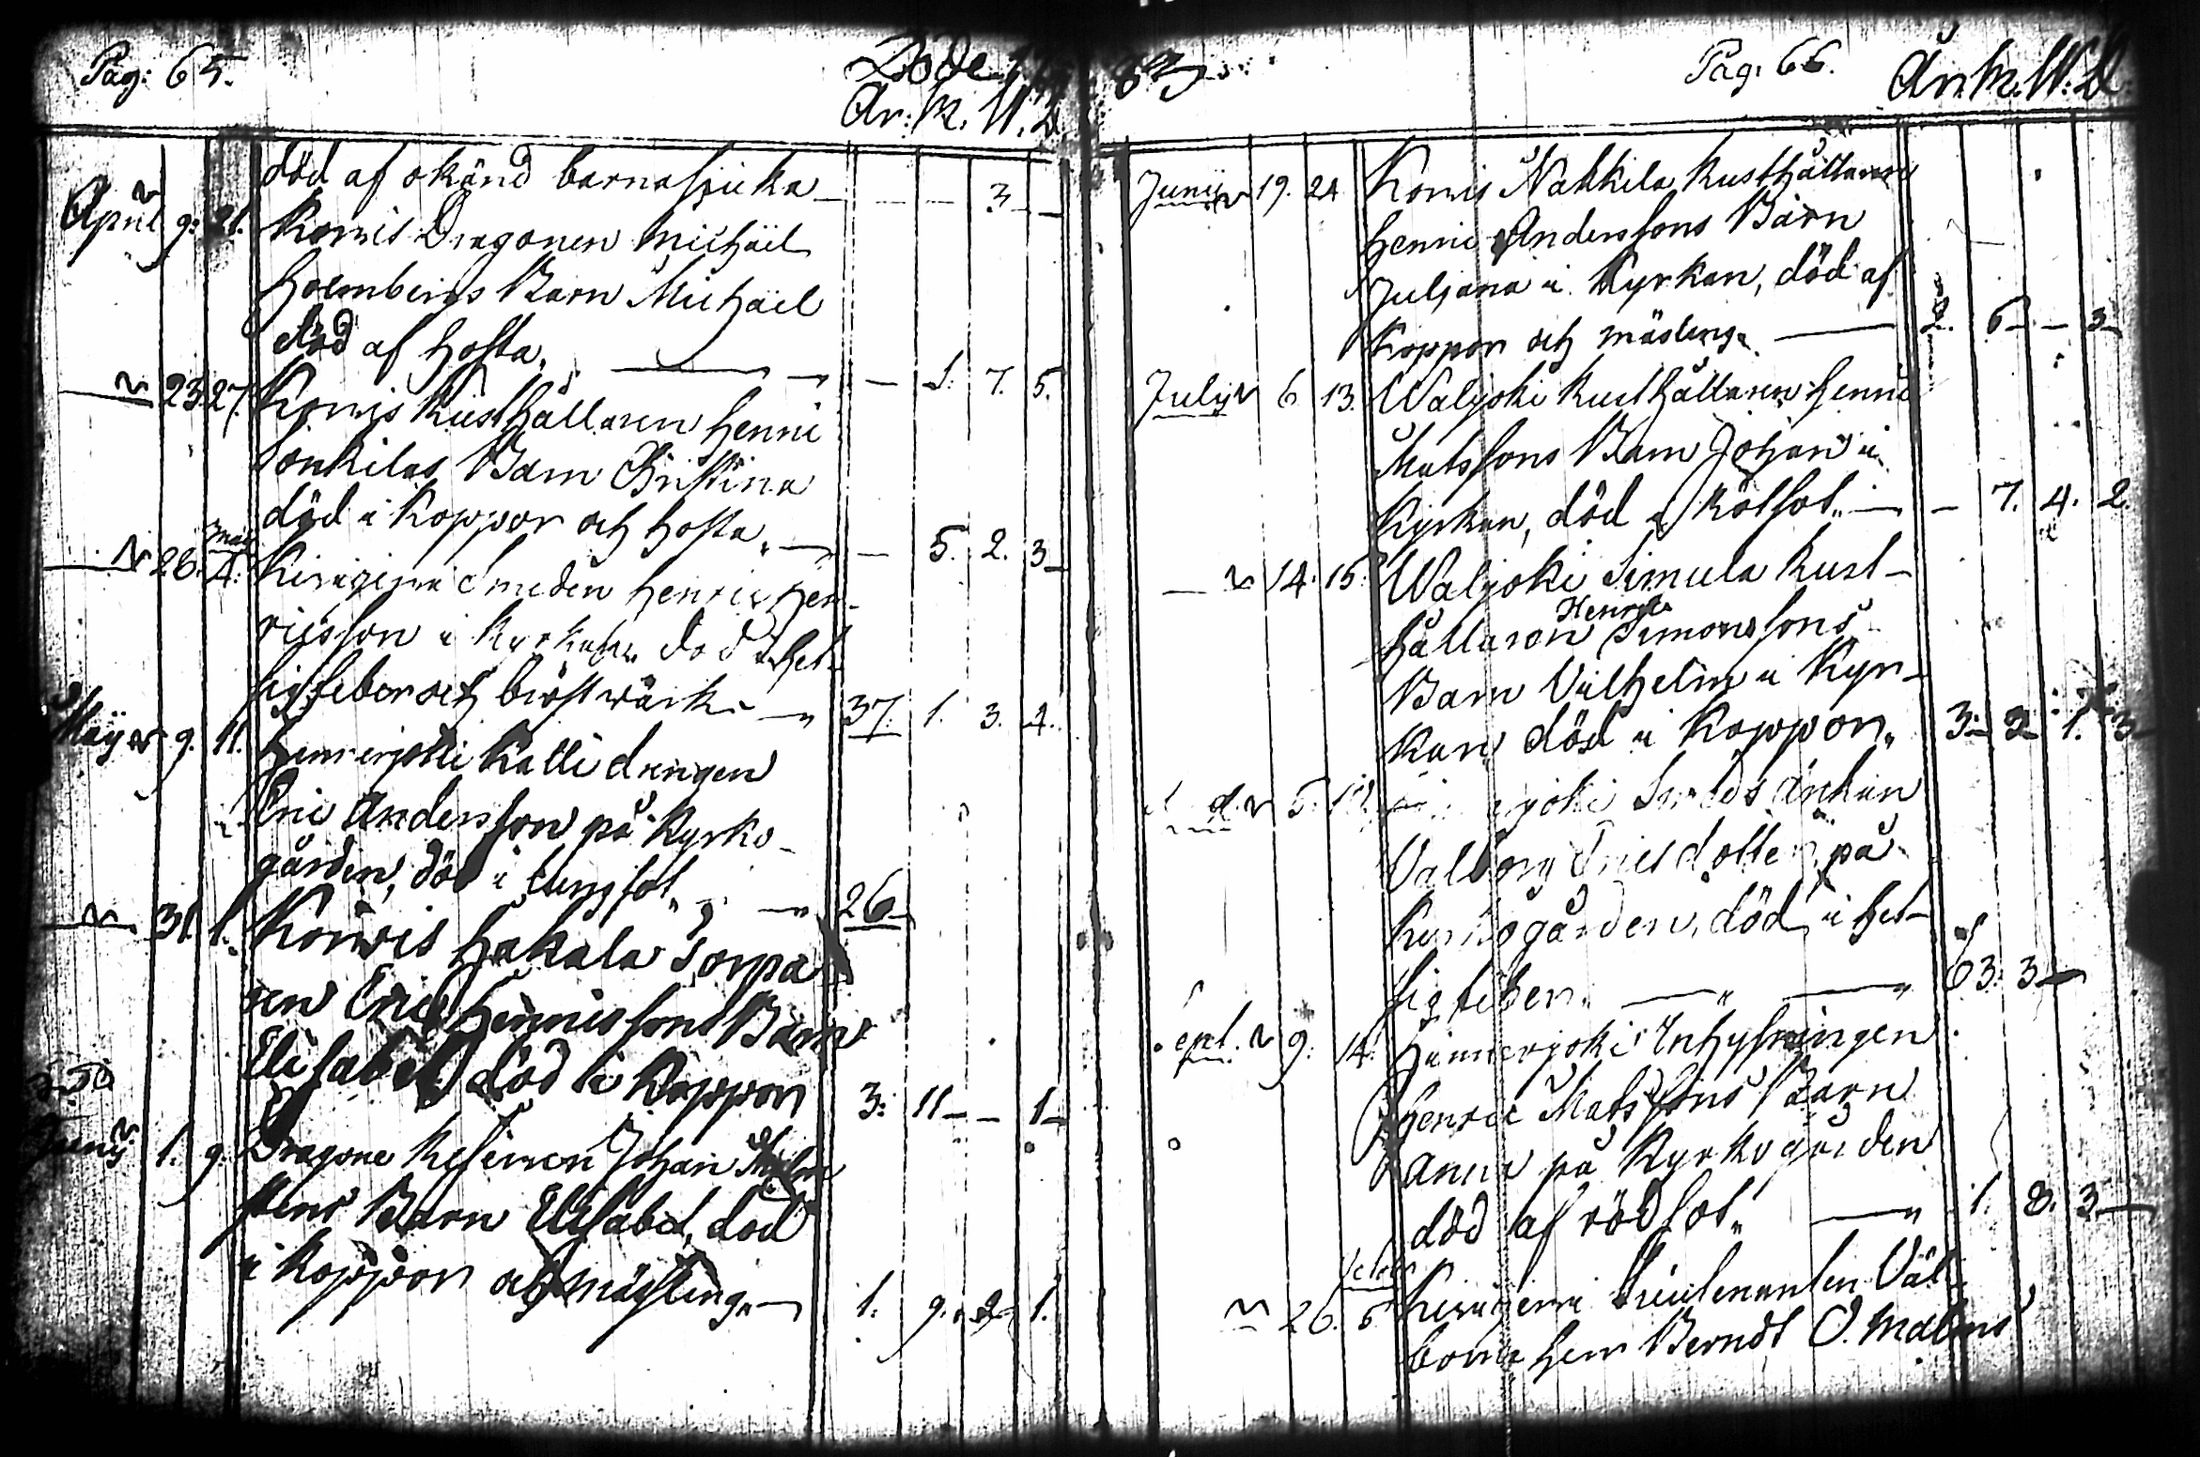 Pag: 65.
Döde
År. M. W. D.
död af okänd barnasjuka — — — 3 —
April 9. 21. Kowis Dragonen Michäel
Holmbergs Barn Michäel
död af hosta. — — — 1. 7. 5.
— 23. 27. Kowis Rusthållaren Henric
Sonkilas Barn Christina
död i Koppor och hosta. — — 5. 2. 3 —
— 26. Maij 4. Smeden Henric Hen-
ricsson i Kyrkan, död i het-
sig feber och bröstwärk — 37. 1. 3. 4.
Maij 9. 11. Kalli drengen
Eric Andersson på Kyrko-
gården, död i lungsot. — 26 —
— 31. 1. Kowis Hakala Torpa
ren Eric Henricssons Barn
Elisabet död i Koppor 3. 11 — — 1 —
Junij 1. 9. Dragone Johan
stens Barn Elisabet, död
i Koppor och mässling. — 1. 9. 2. 1.
83
Pag: 66.
År. M. W. D.
Junij 19. 24 Kowis Nakkila Rusthållaren
Henric Anderssons Barn
Juljana i Kyrkan, död af
Koppor och mäsling. — 2. 6 — — 3 —
Julij 6 13. Waljoki Rusthållaren Henric
Matssons Barn Johan i
Kyrkan, död i Rötsot. — — 7. 4. 2.
— 14. 15. Waljoki Simula Rust-
hållaren Henric Simonssons
Barn Vilhelm i Kyr-
kan, död i Koppor. 3 — 2 — 1. 3
5. joki Smeds änkan
Valborg Ericsdotter på
Kyrkogården, död i het-
sig feber. — — 63. 3 —
Sept. 9. 14. Hinnerjoki Inhysningen
Henric Matssons Barn
Anna på Kyrkogården
död af rödsot. — 1. 8. 3 —
— 26. 5 Lieutenanten Väl-
borne Herr Berndt O. Malms